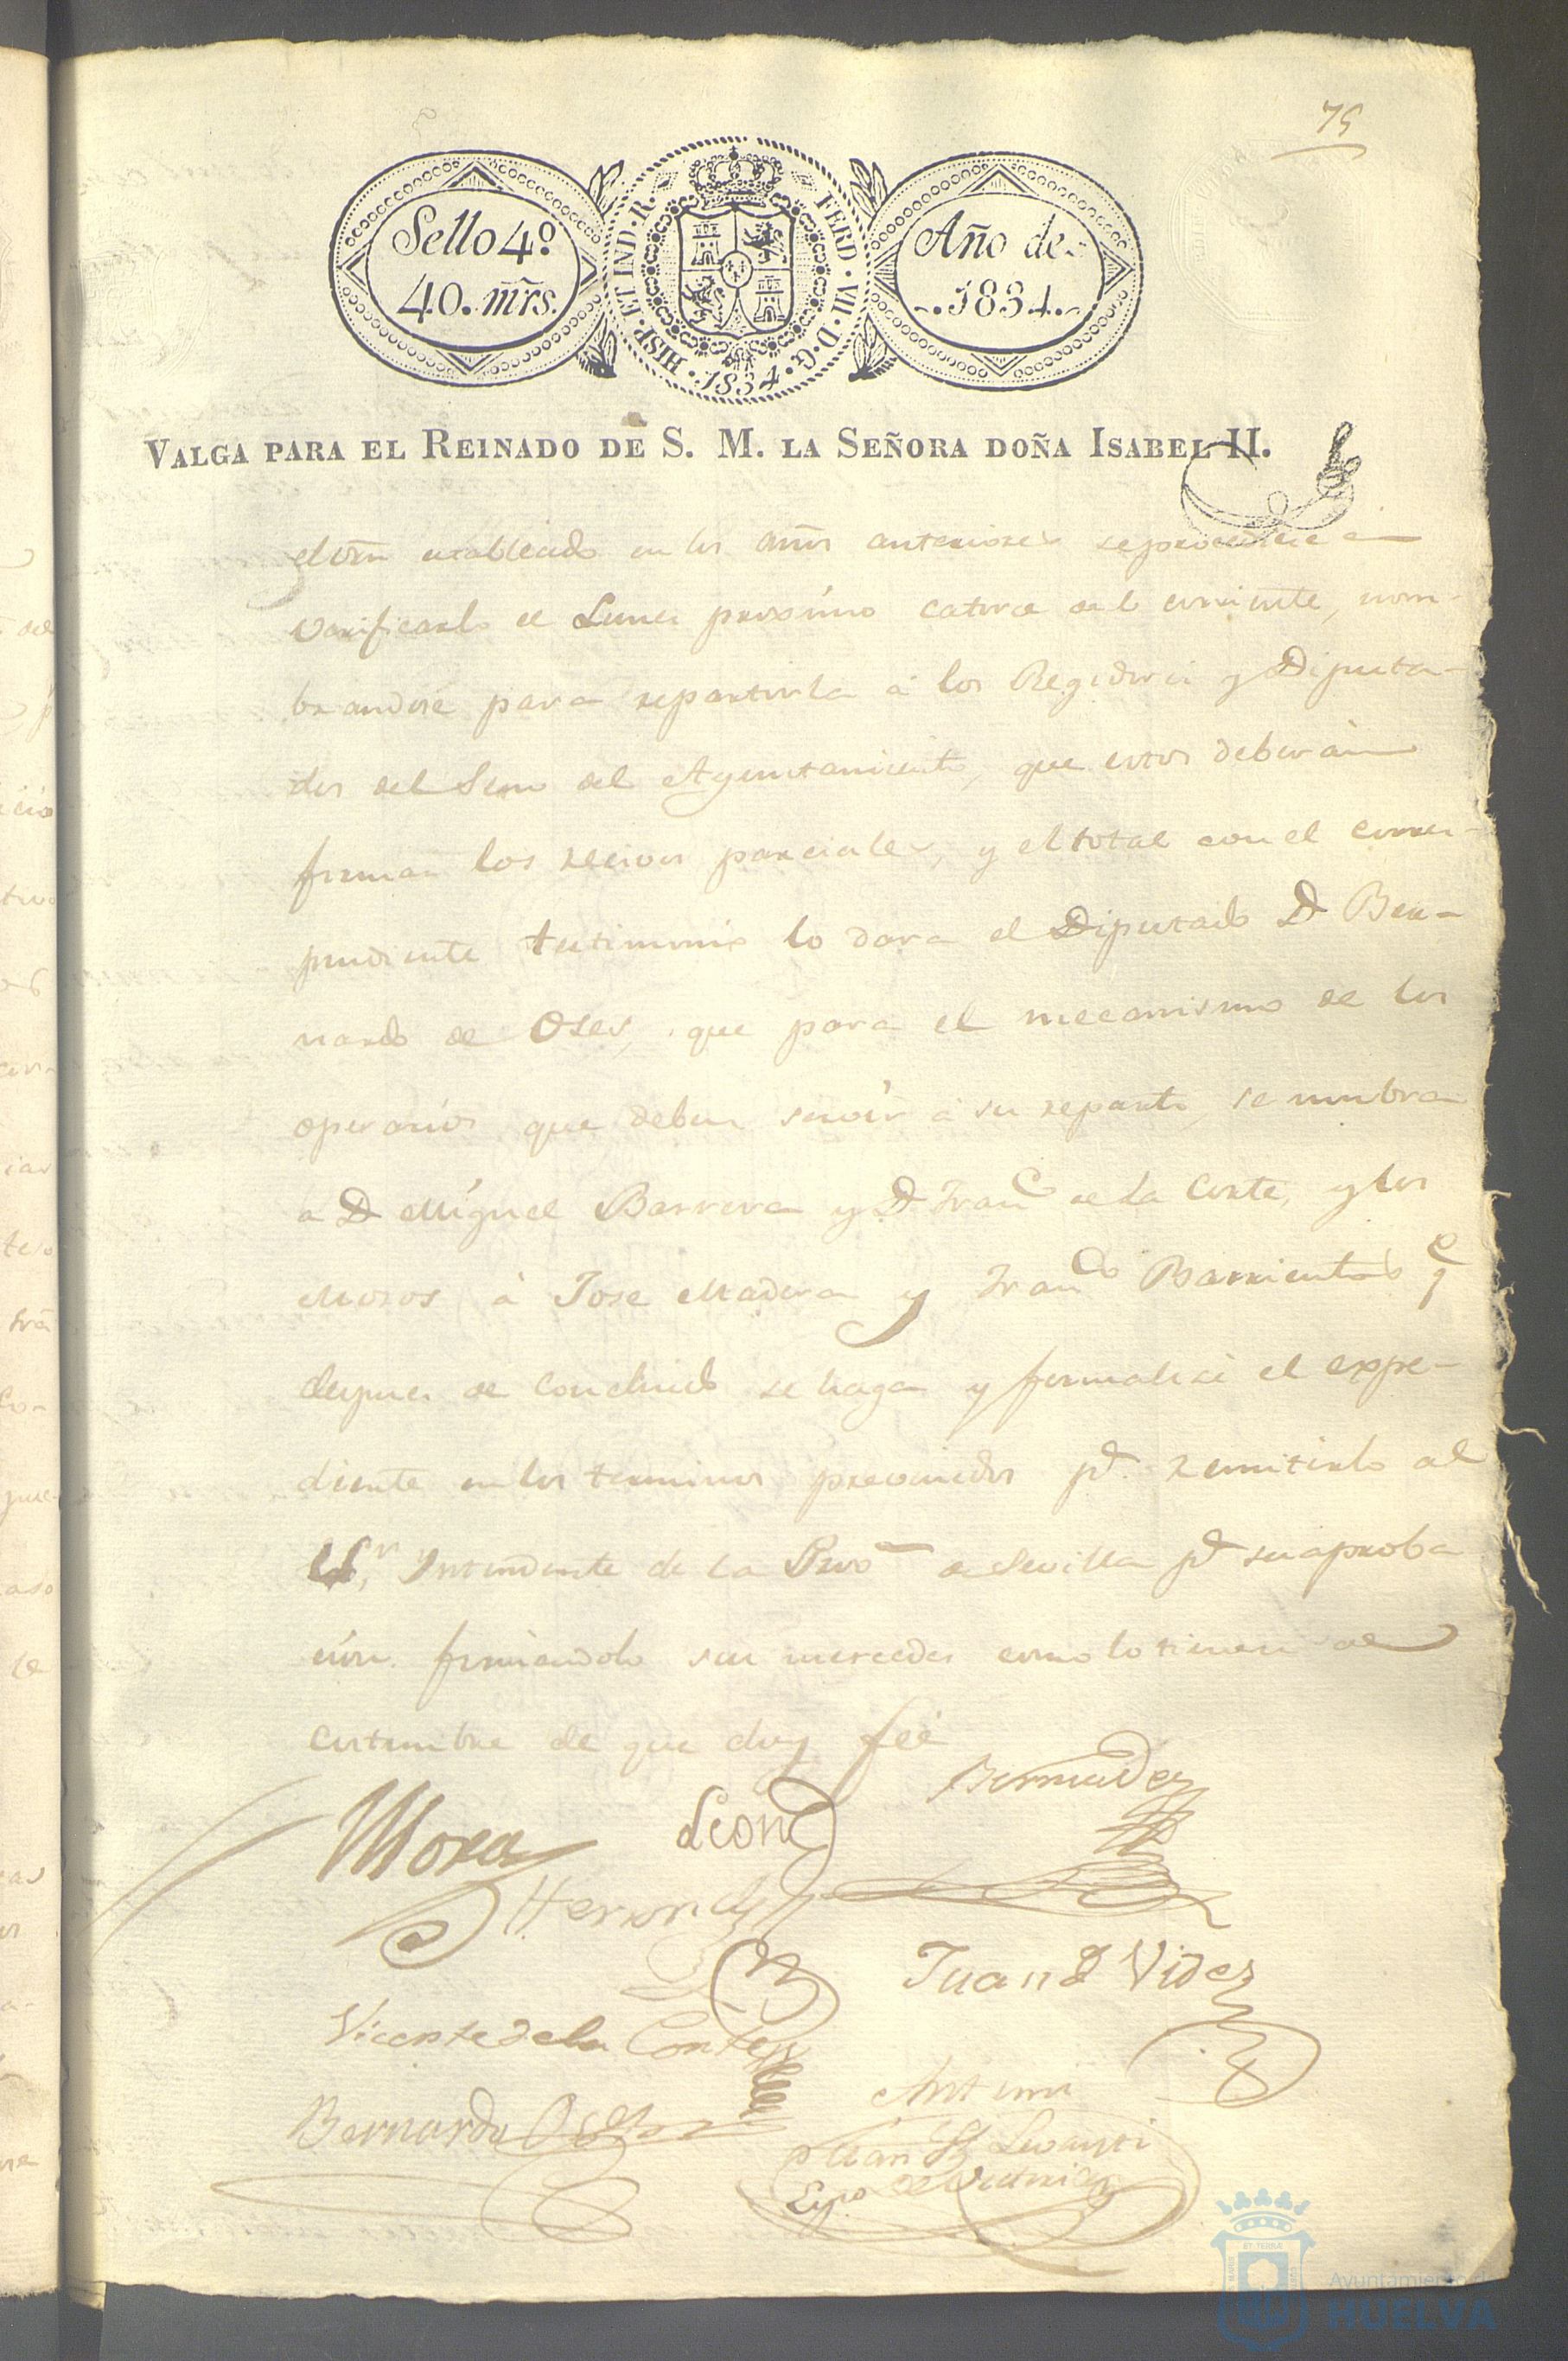 75
Sello 4º
40. mrs.
HISP. ET IND. R. FERD. VII. D. G. 1834.
Año de
1834.
VALGA PARA EL REINADO DE S. M. LA SEÑORA DOÑA ISABEL II.
el orn establecido en los años anteriores se procediese a
verificarlo el Lunes proximo catorce del corriente, nom-
brandose para repartirla á los Regidores y Diputa-
dos del Seno del Ayuntamiento, que estos deberán
firmar los recivos parciales, y el total con el corres-
pondiente testimonio lo dara el Diputado D Ber-
nardo de Oses, que para el mecanismo de los
operarios que deben servir á su reparto, se nombra
a D Miguel Barrera y D Franco de la Corte, y los
Mozos á Jose Madera y Franco Barrientos q e
despues de concluido se haga y formalice el expe-
diente en los terminos prevenidos pa. remitirlo al
Sr. Yntendente de la Prova de Sevilla pa su aproba
cion firmandolo sus mercedes como lo tienen de
costumbre de que doy feé
Mora
Leon
Bermudez
Hernandez
Juan d Vides
Vicente de la Corte
Bernardo Oses
Antemi
Esno